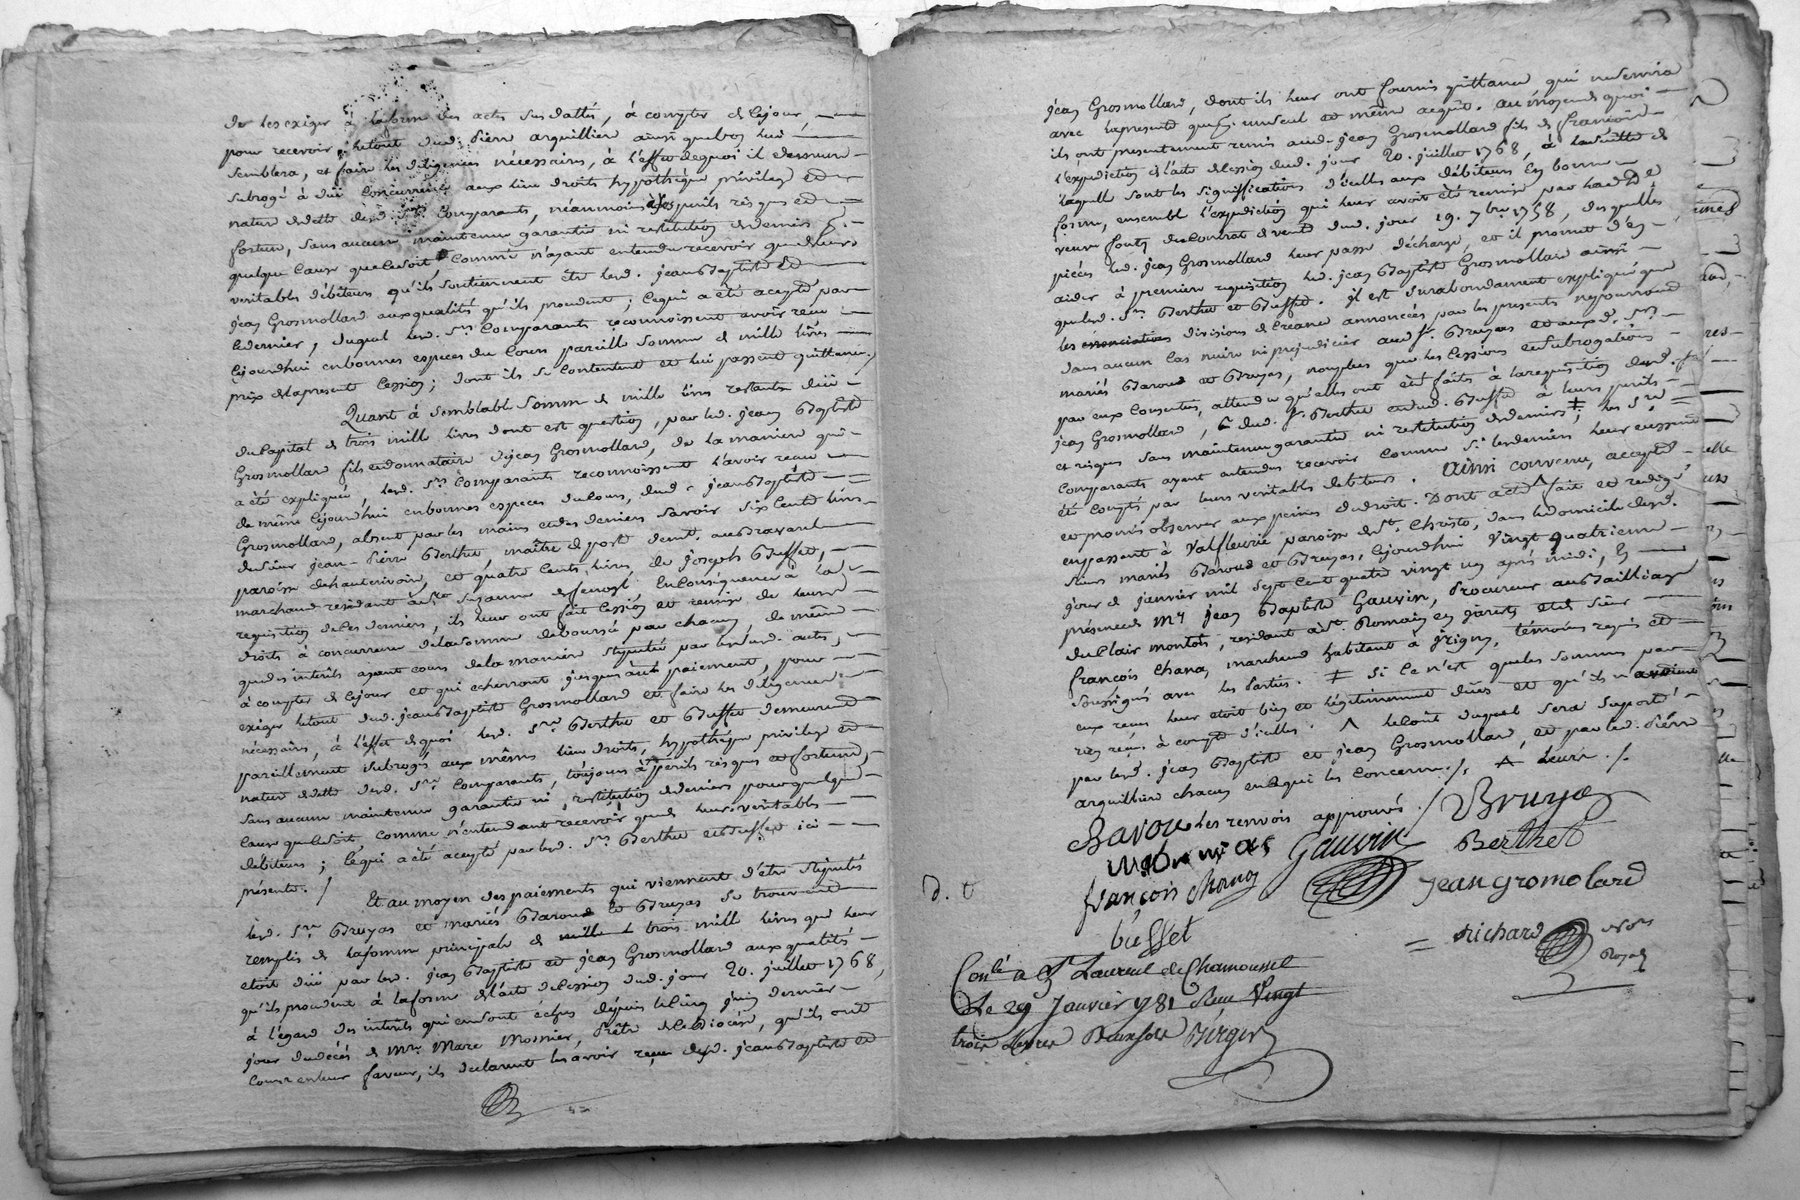 de les exiger à la forme des actes sus dattés, à compter de cejour,
pour recevoir le tout dud. Pierre arguillière ainsi que bon lui
semblera, et faire les diligences nécessaires, à l'effet dequoi il demeure
subrogé à düe concurrence aux lieu droits hypothèque privilege et
nature de dette desd. Srs. comparants, néanmoins à ses perils risques et
fortune, sans aucune maintenue garantie ni restitution de deniers
quelque cause que ce soit, comme n'ayant entendu recevoir que de leurs
veritables débiteurs qu'ils soutiennent être led. jean Baptiste et
jean Grosmollard aux qualités qu'ils procedent; ce qui a été accepté par
ce dernier, duquel lesd. Srs. Comparants reconnoissent avoir reçu
cejourdhui en bonnes especes du Cours pareille somme de mille livres
prix de la presente Cession; dont ils se contentent et lui passent quittance./
Quant à semblable somme de mille livres restante düe
du Capital de trois mille livres dont est question, par led. jean Baptiste
Grosmollard fils et donnataire dejean Grosmollard, de la maniere qui
a été expliquée, lesd. Srs. Comparants reconnoissent l'avoir reçue
de même cejourdhui en bonnes especes du Cours, dud. jean Baptiste
Grosmollard, absent par les mains et des deniers savoir six Cents livres
du sieur jean-Pierre Berthet, maître de poste demt. au Bravand
paroisse de hauterivoire, et quatre Cents livres, de joseph Buffet,
marchand residant à Ste. Suzanne de fenoyl. En Conséquence à la
requisition de ces derniers, ils leur ont fait Cession et remise de leurs
droits à concurrence de la somme deboursée par chacun, de même
que des intérêts ayant cours de la maniere stipulée par les susd. actes,
à compter de cejour et qui echerront jusques au paiement, pour
exiger letout dud. jean Baptiste Grosmollard et faire les diligences
nécessaires, à l'effet dequoi lesd. Srs. Berthet et Buffet demeurent
pareillement subrogés aux mêmes lieu droits, hypothèque privilege et
nature de dette desd. Srs. comparants, toujours à perils risques et fortune,
sans aucune maintenue garantie ni restitution de deniers pour quelque
Cause que ce soit, comme n'entendant recevoir que de leurs veritables
debiteurs; ce qui a été accepté par lesd. Srs. Berthet et Buffet ici
présents./
Et au moyen des paiements qui viennent d'être stipulés
lesd. Srs. Bruyas et mariés Baroud et Bruyas se trouvent
remplis de la somme principale de mille trois mille livres que leur
etoit düe par lesd. jean Baptiste et jean Grosmollard aux qualités
qu'ils procedent à la forme de l'acte de Cession dud. jour 20. juillet 1768,
à l'égard des intérêts qui en sont échus depuis le cinq juin dernier
jour du décès de Mre. Marc Mosnier, Prêtre de ce Diocèse, qu'ils ont
Couru en leur faveur, ils declarent les avoir reçus desd. jean Baptiste et
jean Grosmollard, dont ils leur ont fourni quittance qui ne servira
avec la presente que d'un seul et même acquit. au moyen de quoi
ils ont presentement remis aud. jean Grosmollard fils de françois
l'expedition de l'acte de Cession dud. jour 20. juillet 1768, à la suitte de
laquelle sont les significations d'icelle aux débiteurs en bonne
forme, ensemble l'expedition qui leur avoit été remise par lad. De
veuve font du contrat de vente dud. jour 19. 7bre. 1758, desquelles
pièces led. jean Grosmollard leur passe décharge, et il promet d'en
aider à premiere requisition led. jean Baptiste Grosmollard ainsi
que lesd. Srs. Berthet et Buffet. il est surabondamment expliqué que
les enonciations divisions de creance annoncées par les presentes ne pourront
dans aucun cas nuire ni prejudicier aud. Sr. Bruyas et auxd. Srs.
mariés Baroud et Bruyas, non plus que les Cessions et subrogations
par eux consenties, attendu qu'elles ont été faites à la requisition dud. Sr.
jean Grosmollard, & dud. Sr. Berthet et dud. Buffet à leurs perils
et risques sans maintenue garantie ni restitution de deniers ‡, les Srs.
Comparants ayant entendu recevoir comme si ces derniers leur eussent
été comptés par leurs veritables debiteurs. Ainsi convenu, accepté
et promis observer aux peines du droit. Dont acte ^ fait et redigé
en passant à Valfleurie paroisse de St. Christo, dans le domicile desd.
sieurs mariés Baroud et Bruyas, cejourdhui vingt quatrieme
jour de janvier mil sept cent quatre vingt un après midi, En
présence de Me. jean Baptiste Gauvin, Procureur au Bailliage
du Clair montois, residant à St. Romain en jarrets et de sieur
françois Chana, marchand habitant à Grigny, témoins requis et
soussignés avec les Parties. ‡ si ce n'est que les sommes par
eux reçues leur etoit bien et légitimement dües et qu'ils n'avoient
rien reçu à compte d'icelles. ^ le coût duquel sera suporté
par lesd. jean Baptiste et jean Grosmollard, et par led. Pierre
arguillière chacun en ce qui les concerne./. A leurs ./.
les renvois approuvés./
Bavou Bruyas
Gauvin Berthet
françois Chana jean gromolard
buffet
D. t
= Richard
Conlé a St Laurent de Chamousset
Le 29 Janvier 1781 Reçu Vingt
trois Livres Deux sols Berger